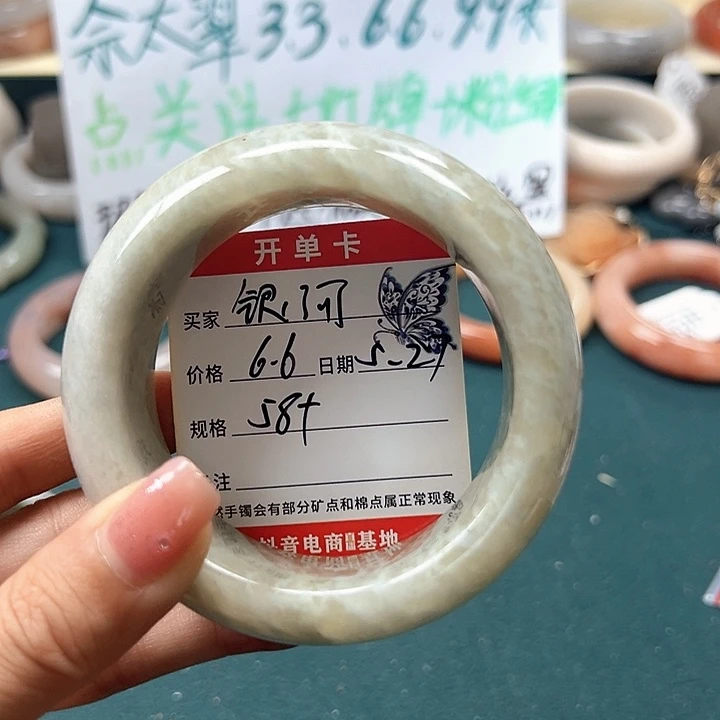 佘太翠 33.66.99米
点关注
开单卡
买家 银河
价格 6.6 日期 5-27
规格 58+
注
手镯会有部分矿点和棉点属正常现象
抖音电商 基地